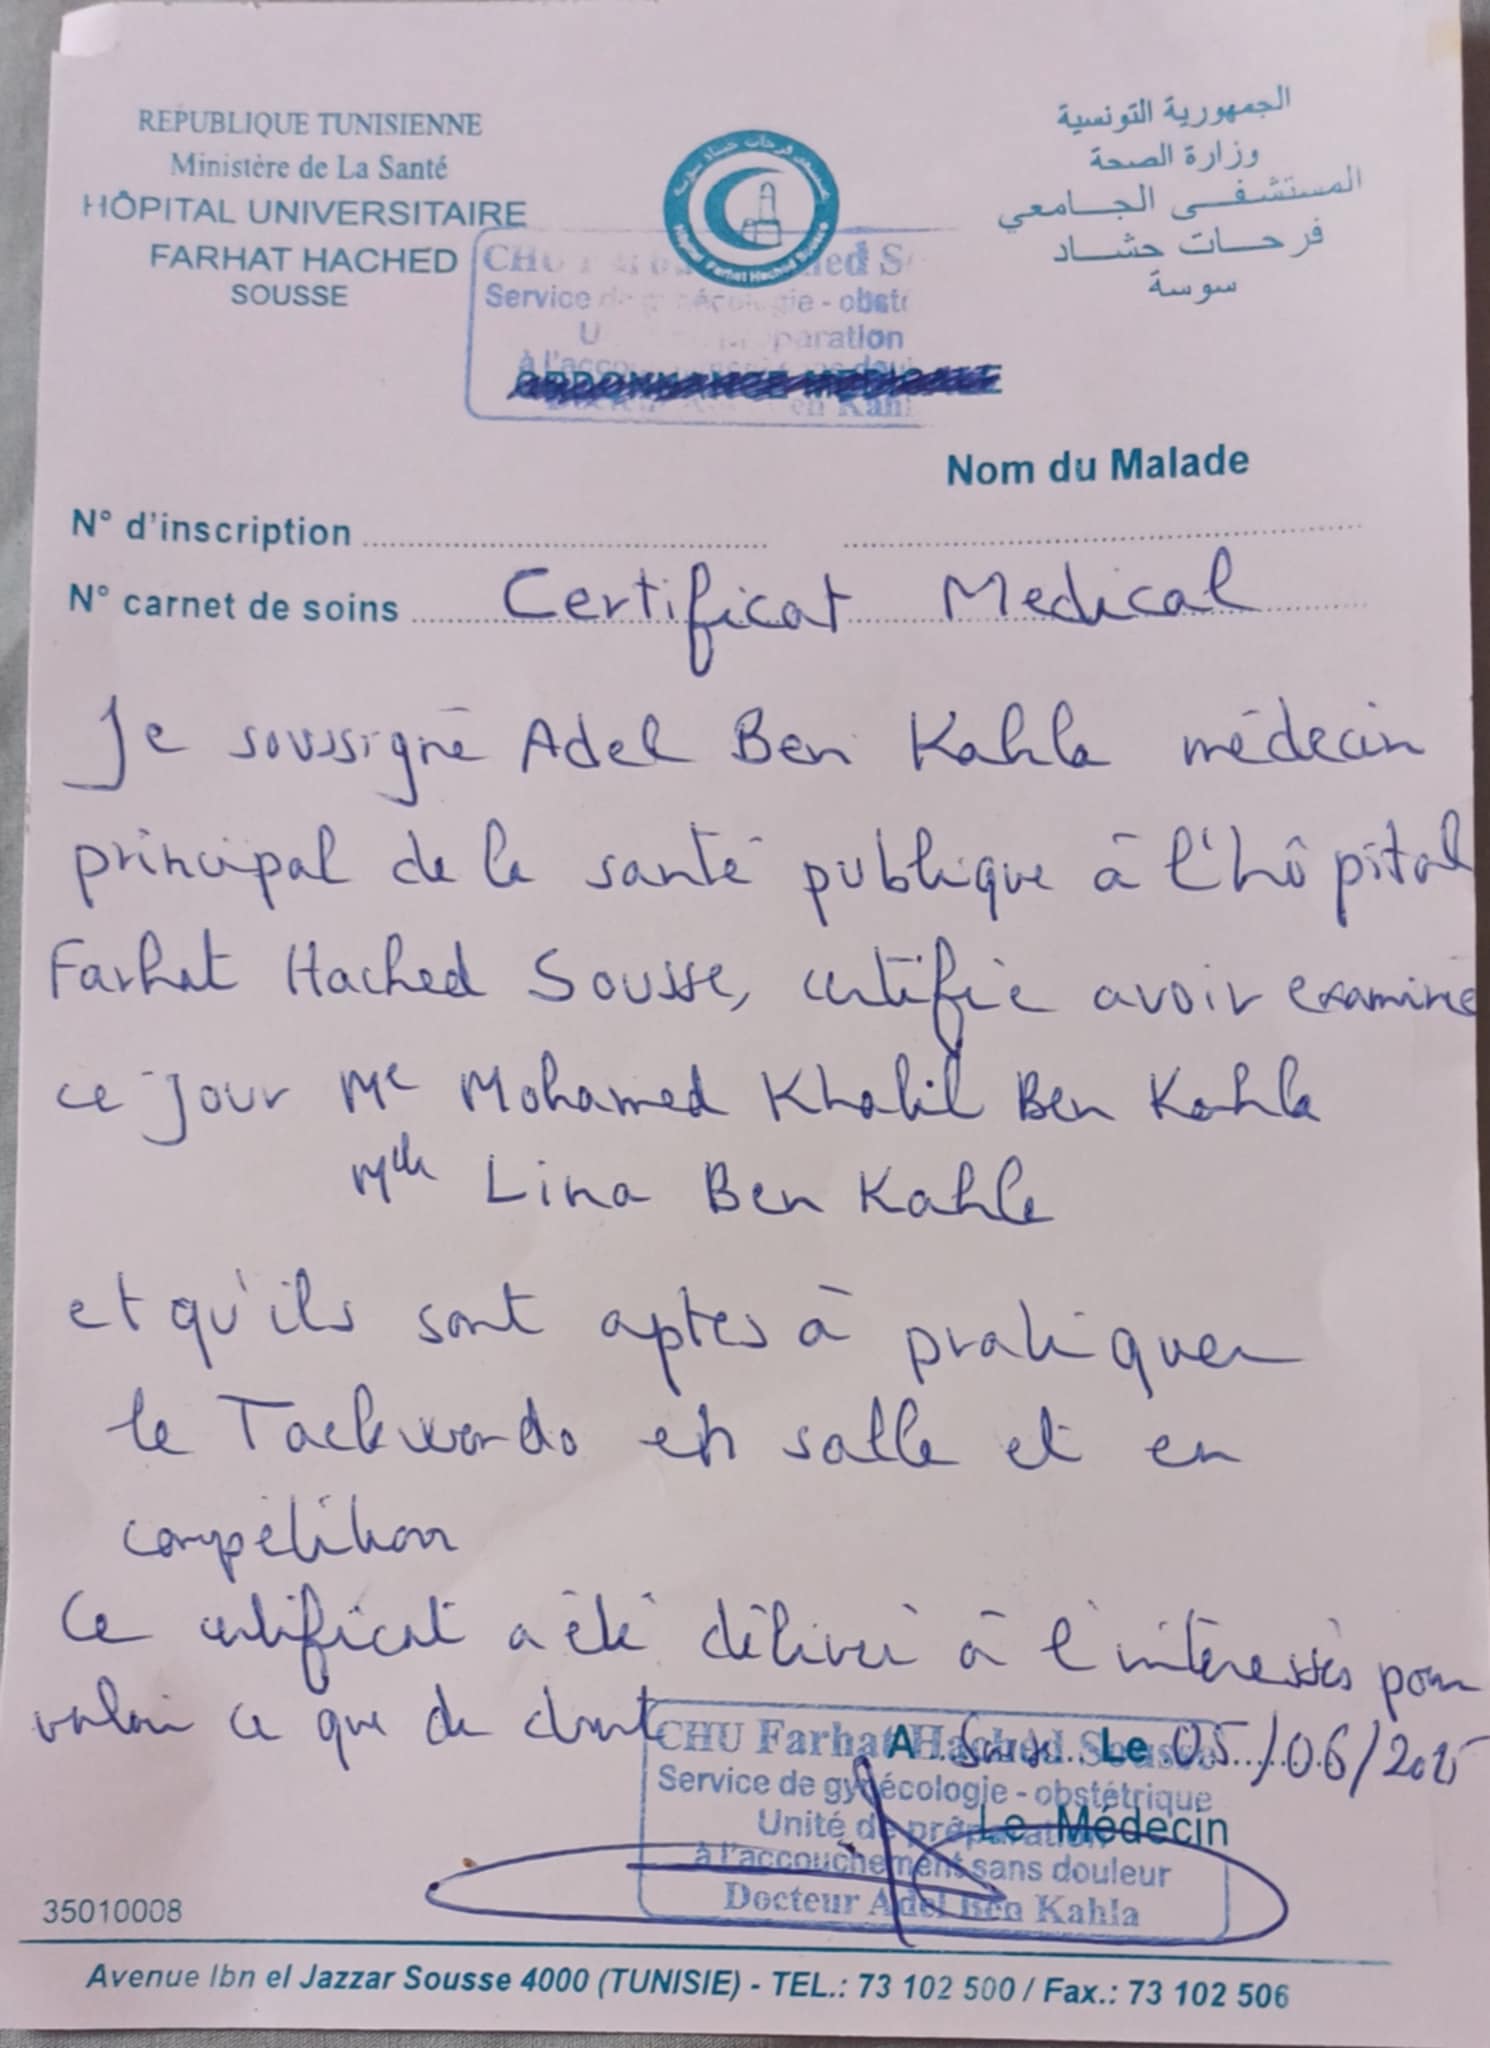 REPUBLIQUE TUNISIENNE
Ministère de La Santé
HÔPITAL UNIVERSITAIRE
FARHAT HACHED
SOUSSE
الجمهورية التونسية
وزارة الصحة
المستشفى الجامعي
فرحات حشاد
سوسة
Hôpital Farhat Hached Sousse
CHU
Service
ORDONNANCE MEDICALE
Nom du Malade
N° d'inscription
N° carnet de soins
Certificat Medical
Je soussigné Adel Ben Kahla médecin
principal de la santé publique à l'hôpital
Farhat Hached Sousse, certifie avoir examiné
ce jour Mr Mohamed Khalil Ben Kahla
Mlle Lina Ben Kahla
et qu'ils sont aptes à pratiquer
le Taekwondo en salle et en
compétition
Ce certificat a été délivré à l'intéressés pour
valoir ce que de droit
A Sousse Le 05/06/2025
Le Médecin
CHU Farhat Hached Sousse
Service de gynécologie - obstétrique
Unité de préparation
à l'accouchement sans douleur
Docteur Adel Ben Kahla
35010008
Avenue Ibn el Jazzar Sousse 4000 (TUNISIE) - TEL.: 73 102 500 / Fax.: 73 102 506